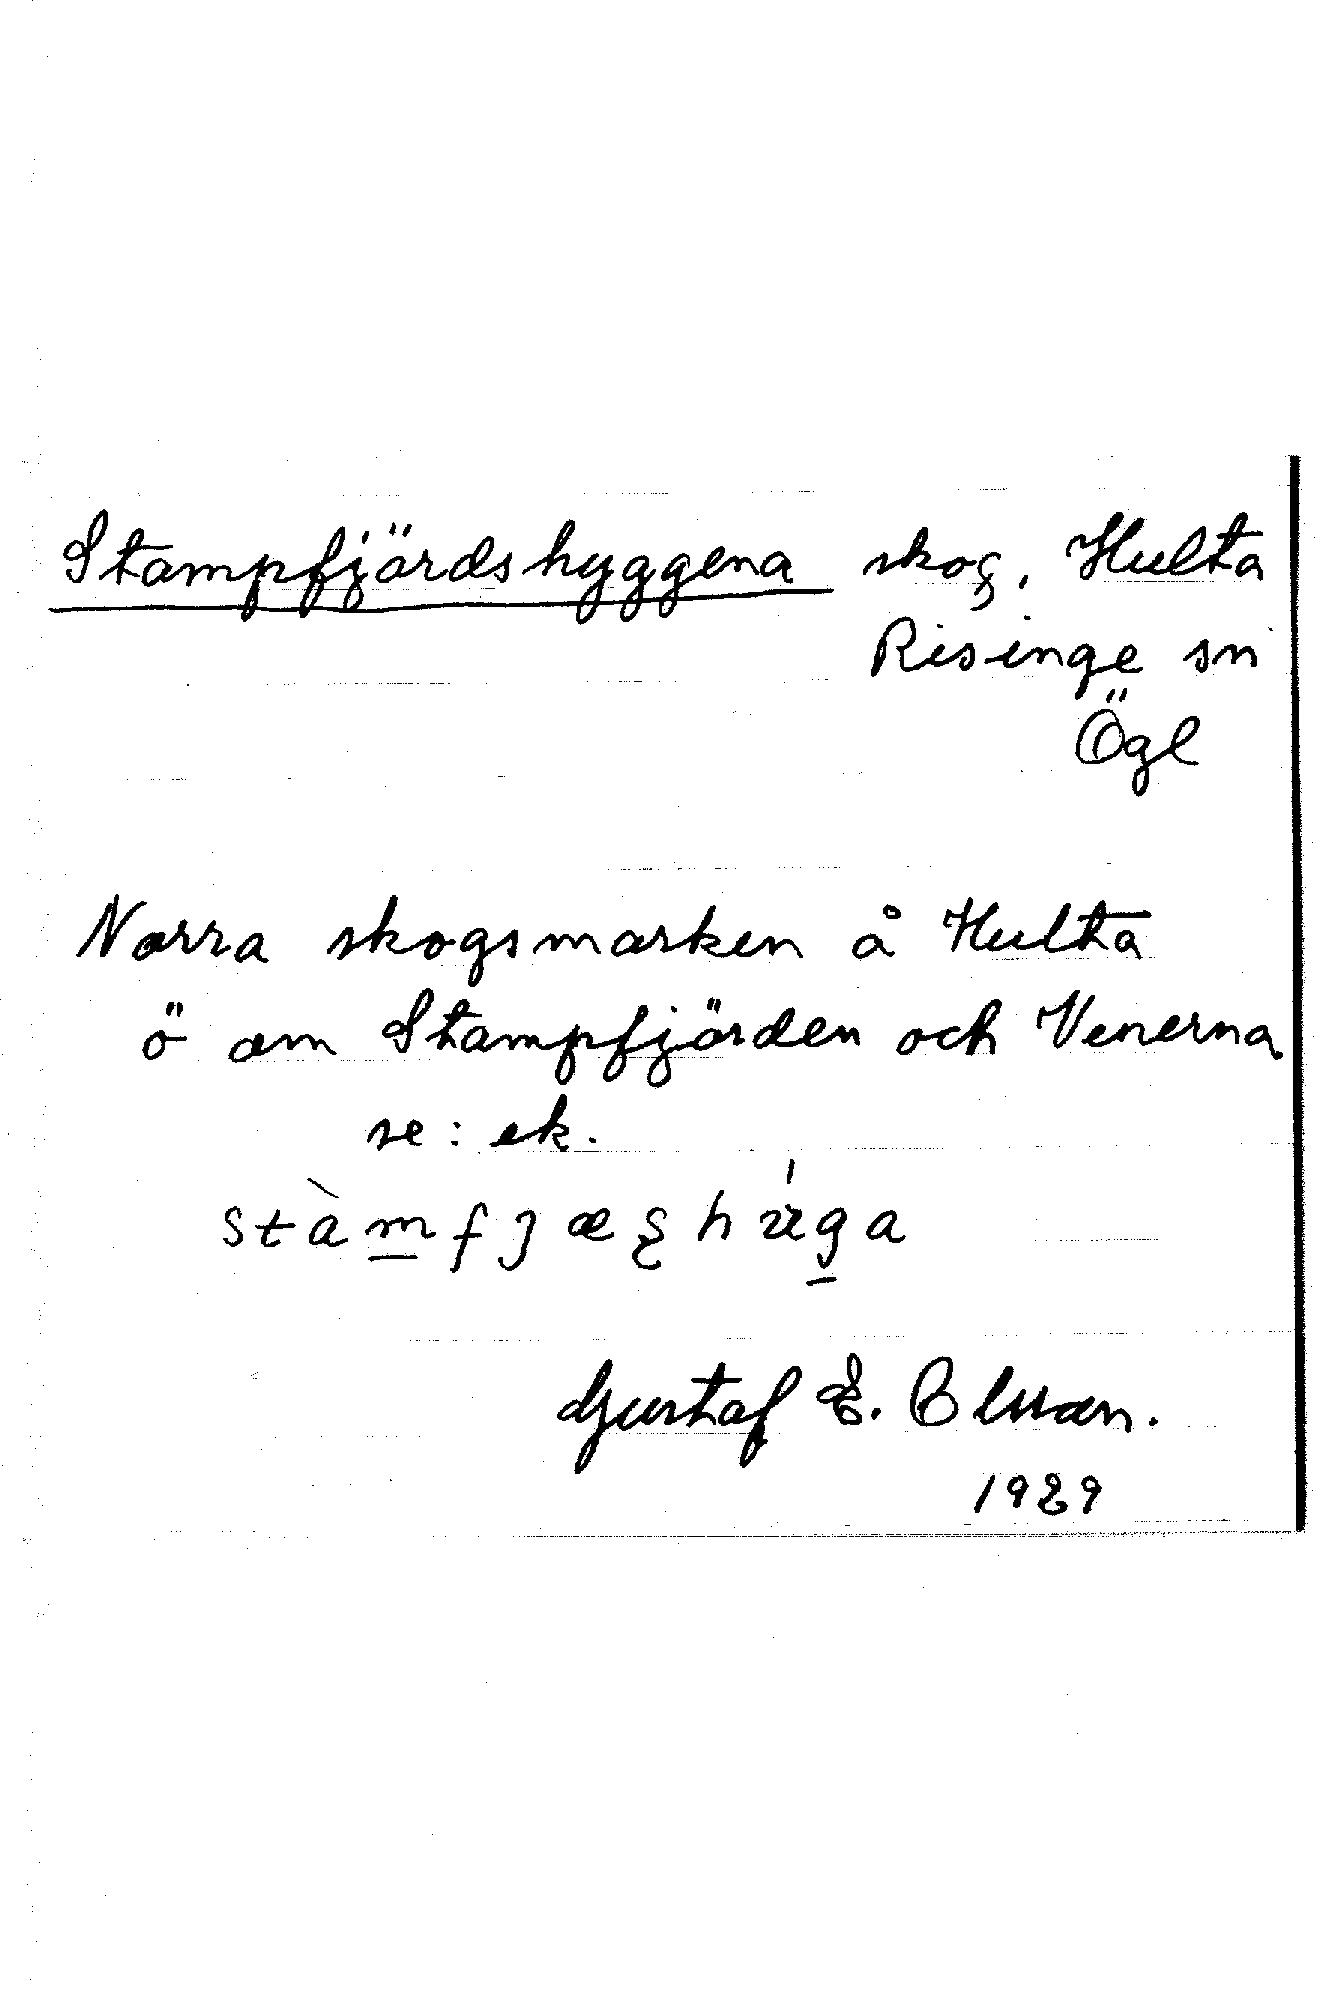 Stampfjärdshyggena skog, Hulta
Risinge sn
Ögl
Norra skogsmarken å Hulta
ö om Stampfjärden och Venerna
se: ek.
stàmfjæʂhúga
Gustaf E. Olsson.
1929